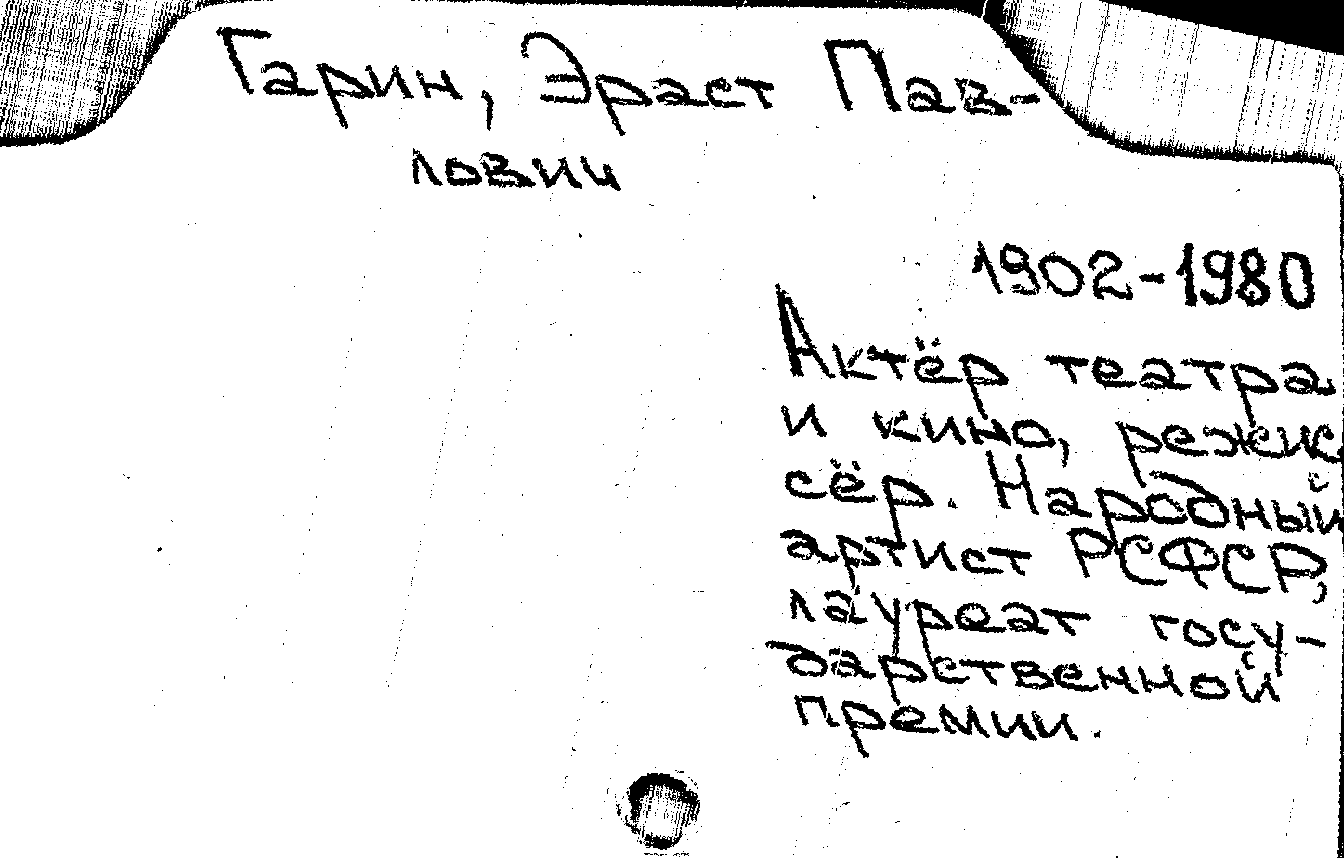 Гарин, Эраст Пав-
лович
1902-1980
Актёр театра
и кино, режис
сёр. Народный
артист РСФСР,
лауреат госу-
дарственной
премии.